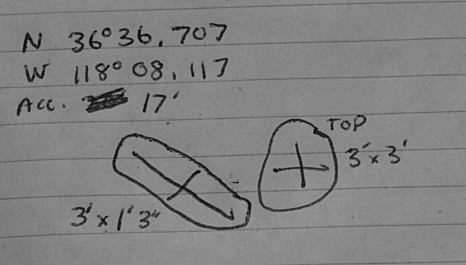 N 36° 36.707
W 118° 08.117
Acc. 17'
TOP
3' x 3'
3' x 1' 3"